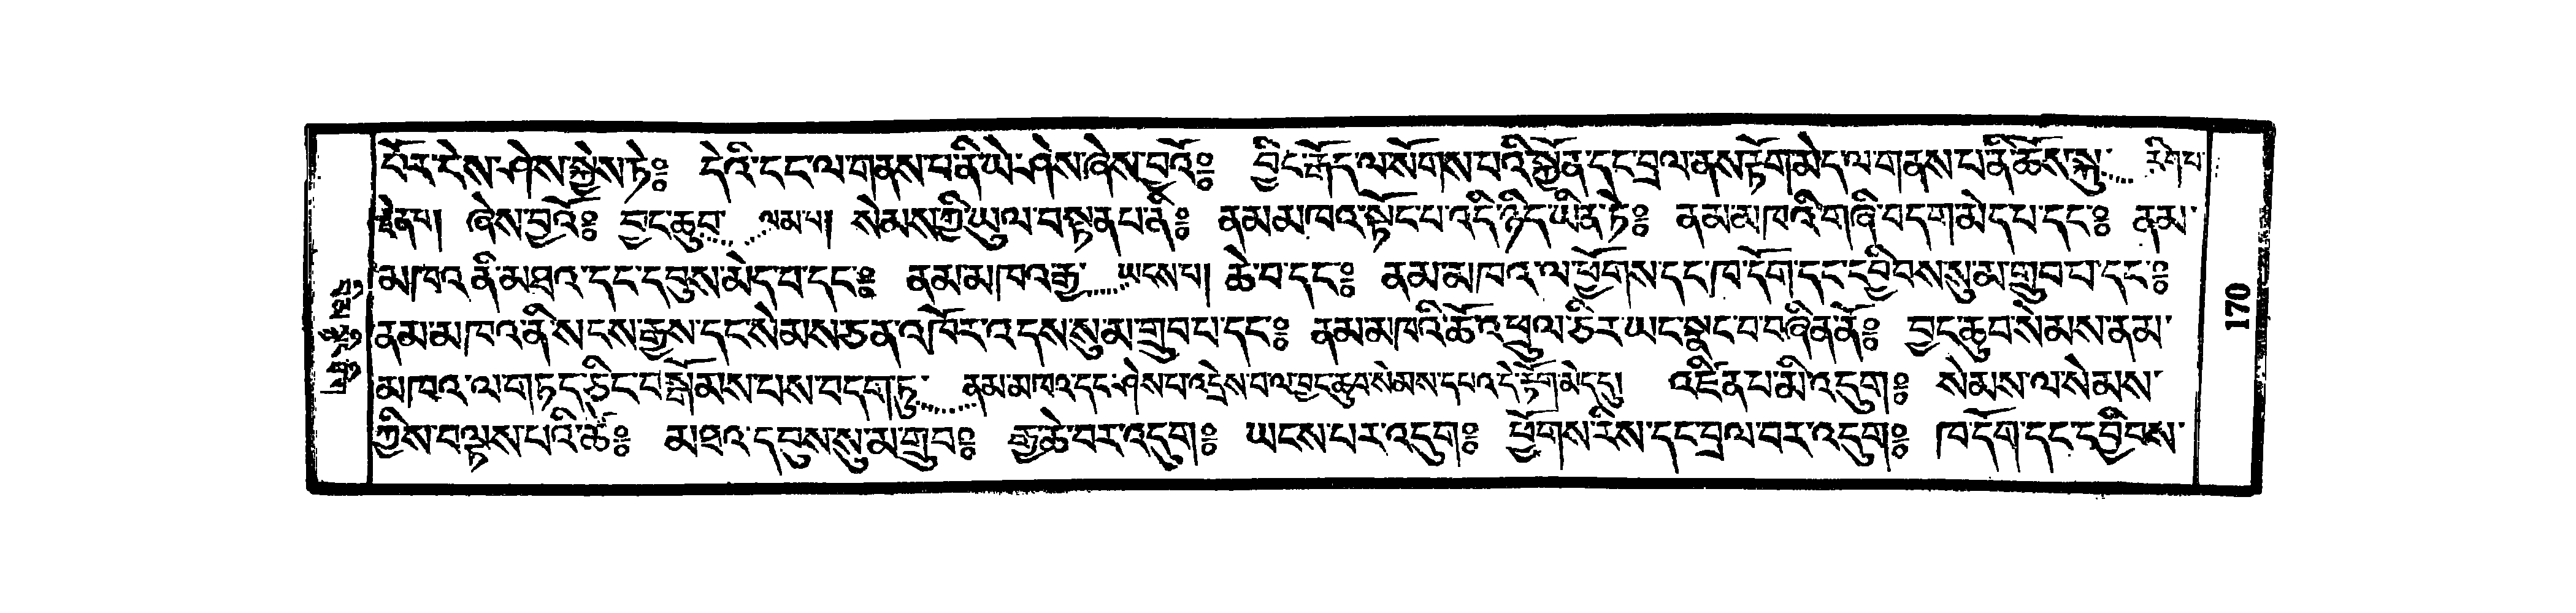 པོར་ངེས་ཤེས་སྐྱེས་ཏེ༔ དེའི་ངང་ལ་གནས་པ་ནི་ཡེ་ཤེས་ཞེས་བྱའོ༔ བྱིང་རྒོད་ལ་སོགས་པའི་སྐྱོན་དང་བྲལ་ནས་རྟོག་མེད་ལ་གནས་པ་ནི་ཆོས་སྐུ་ རིག་པ་
ཞེས་བྱའོ༔ བྱང་ཆུབ་ ལམ་པ། སེམས་ཀྱི་ཡུལ་བསྟན་པ་ནི༔ ནམ་མཁའ་སྟོང་པ་འདི་ཉིད་ཡིན་ཏེ༔ ནམ་མཁའི་གཞི་བདག་མེད་པ་དང་༔ ནམ་
མཁའ་ནི་མཐའ་དང་དབུས་མེད་པ་དང་༔ ནམ་མཁའ་རྒྱ་ ཡངས་པ། ཆེ་བ་དང་༔ ནམ་མཁའ་ལ་ཕྱོགས་དང་ཁ་དོག་དང་དབྱིབས་སུ་མ་གྲུབ་པ་དང་༔
ནམ་མཁའ་ནི་སངས་རྒྱས་དང་སེམས་ཅན་འཁོར་འདས་སུ་མ་གྲུབ་པ་དང་༔ ནམ་མཁའི་ཆོ་འཕྲུལ་ཅིར་ཡང་སྣང་བ་བཞིན་ནོ༔ བྱང་ཆུབ་སེམས་ནམ་
མཁའ་ལ་གཏད་ཅིང་བསྒོམས་པས་བདག་ཏུ་ ནམ་མཁའ་དང་ཤེས་པ་འདྲེས་པ་ལ་བྱང་ཆུབ་སེམས་དཔའ་དེ་རྟོག་མེད་དུ། འཛིན་པ་མི་འདུག༔ སེམས་ལ་སེམས་
ཀྱིས་བལྟས་པའི་ཚེ༔ མཐའ་དབུས་སུ་མ་གྲུབ༔ རྒྱ་ཆེ་བར་འདུག༔ ཡངས་པར་འདུག༔ ཕྱོགས་རིས་དང་བྲལ་བར་འདུག༔ ཁ་དོག་དང་དབྱིབས་
170